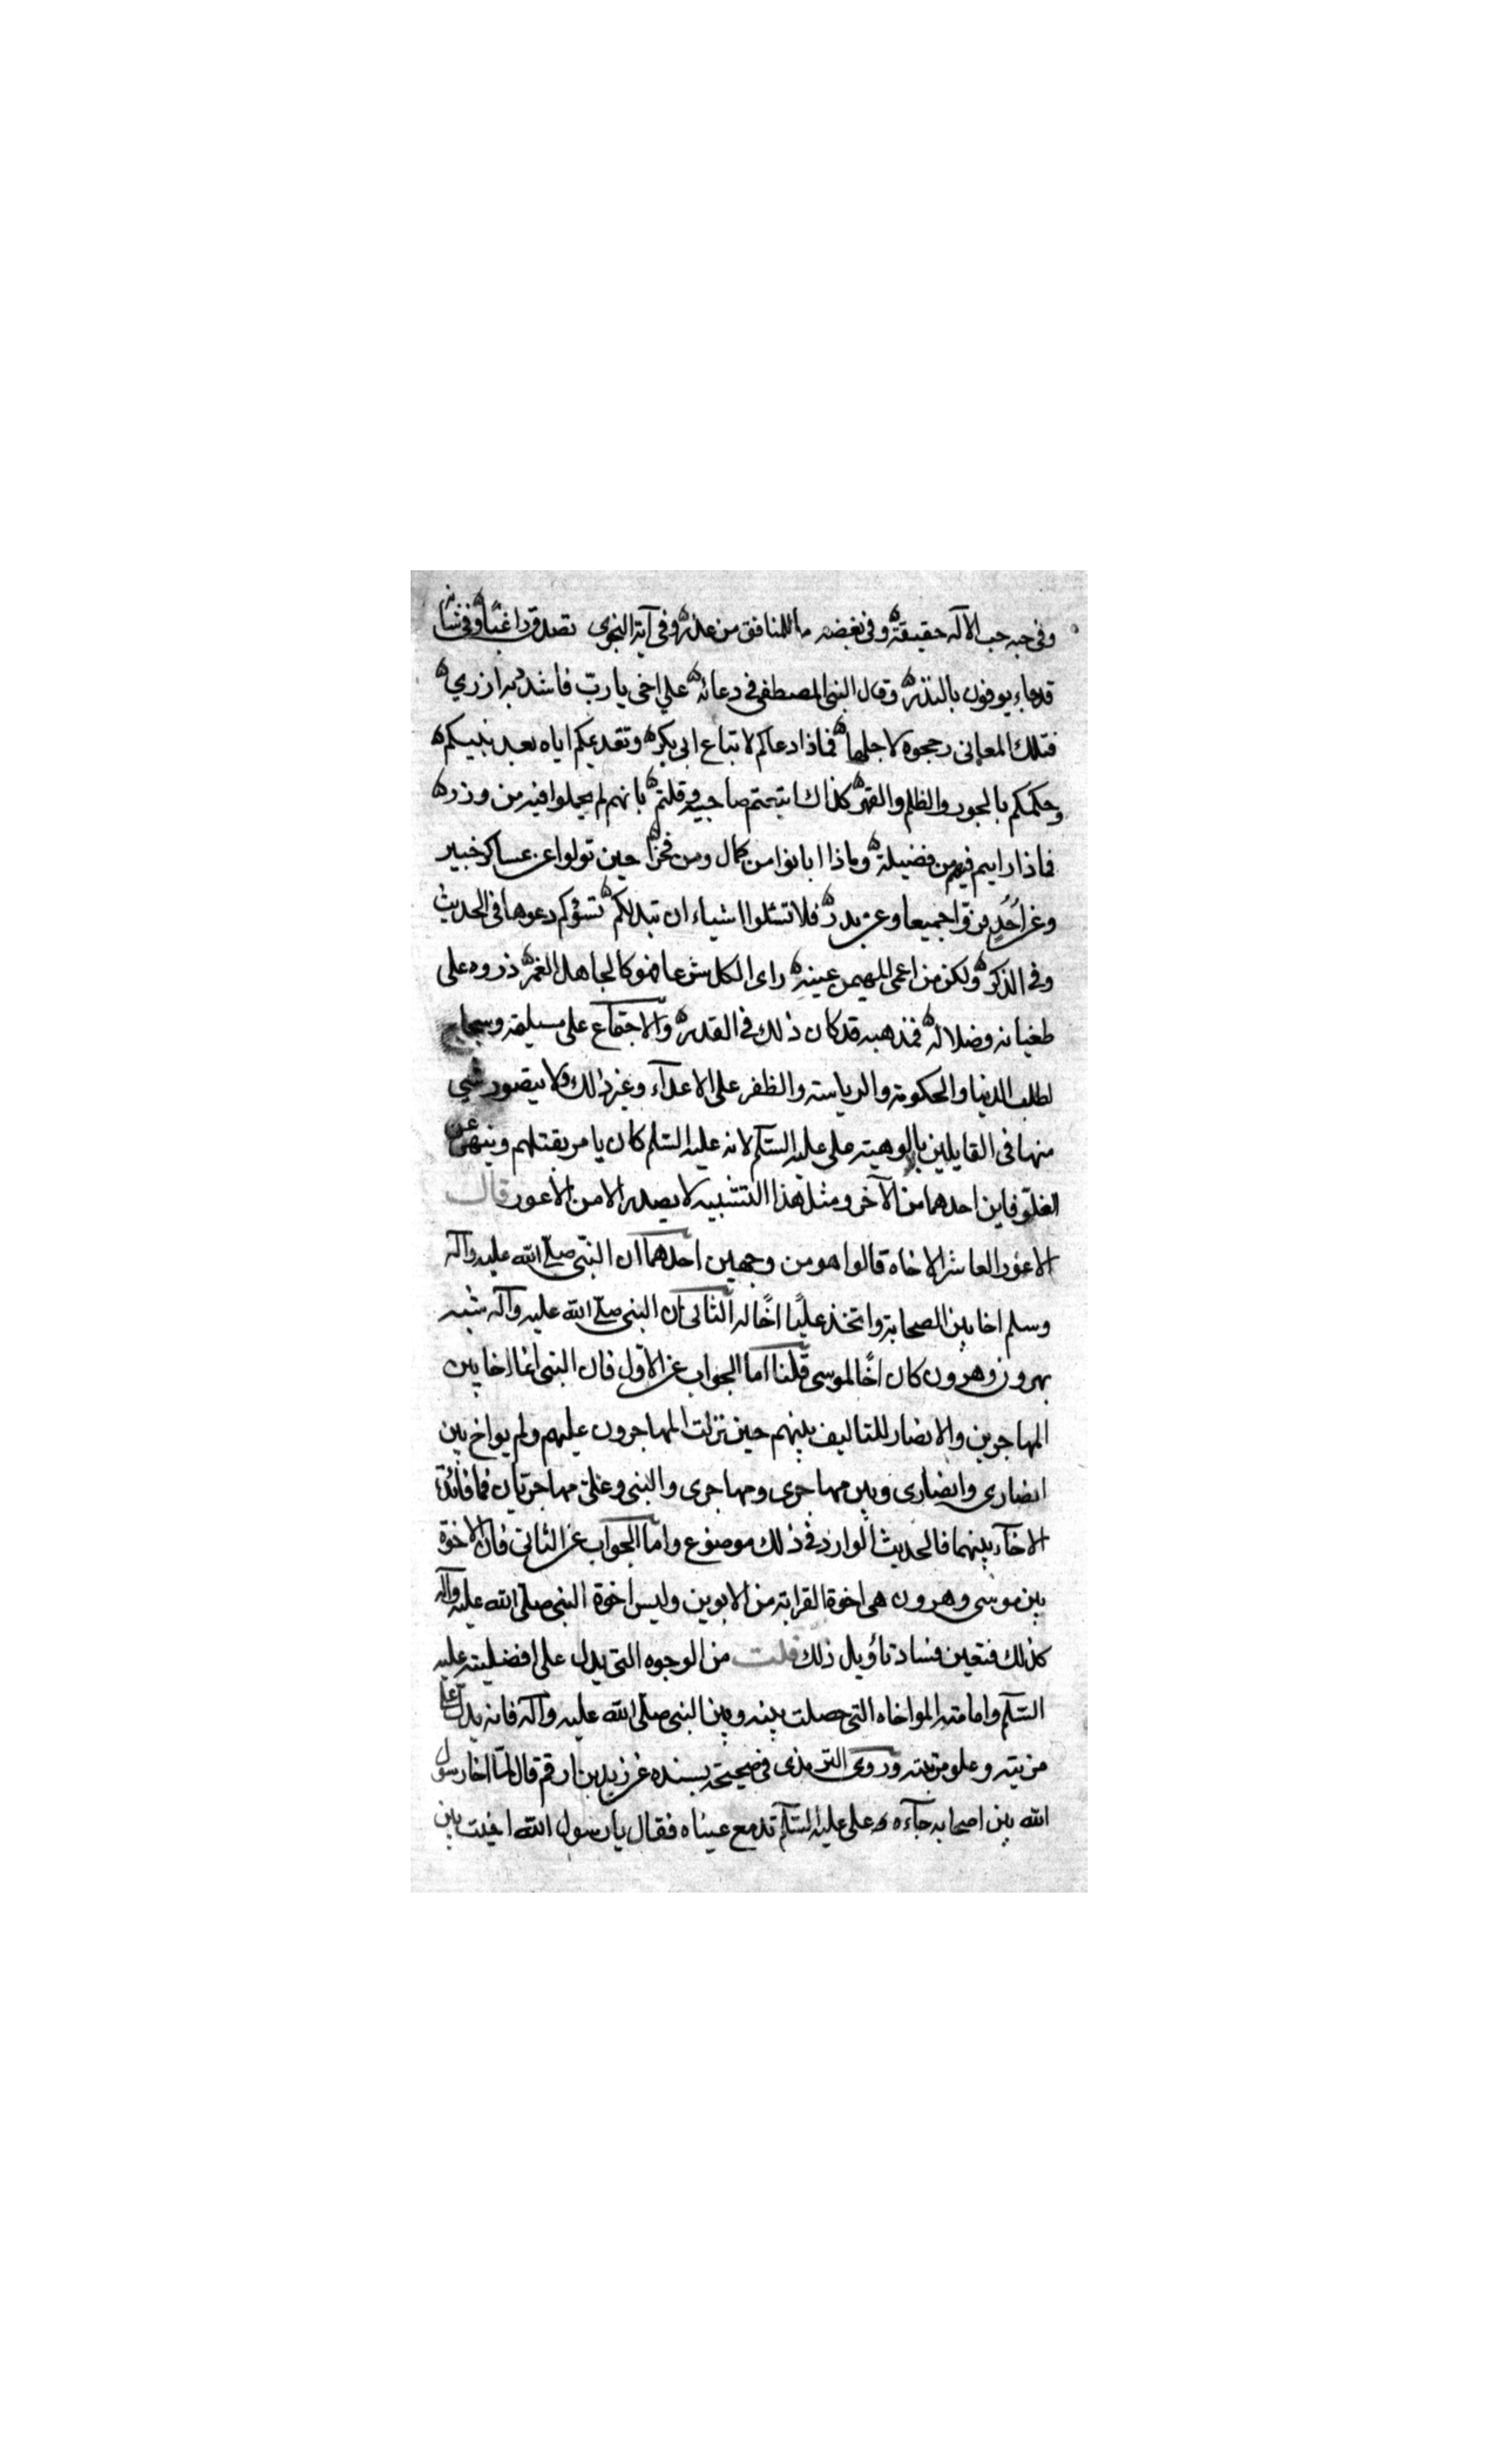 وفى حبه حب الآله حقيقة ه وفى بغضه ما للمنافق من عذر ه وفى آية النجوى تصدق راغبا ه وفى شانه
قد جاء يوفون بالنذر ه وقال النبى المصطفى فى دعائه ه على اخى يا رب فاشدد به ازرى ه
فتلك المعانى رجحوه لاجلها ه فماذا دعاكم لاتباع ابى بكر ه وتقديمكم اياه بعد نبيكم ه
وحكمكم بالجور والظلم والقهر ه كذاك اتبعتم صاحبيه وقلتم ه بانهم لم يحملوا فيه من وزر ه
فماذا رايتم فيهم من فضيلة ه وماذا ابانوا من كمال ومن فخر ه حين تولوا عن عساكر خيبر
وعن احد فروا جميعا وعن بدر ه فلا تسئلوا اشياء ان تبد لكم ه تسؤكم دعوها فى الحديث
وفى الذكر ه ولكن من اعمى المهيمن عينه ه راى الكل شرعا فهو كالجاهل الغمر ه ذروه على
طغيانه وضلاله ه فمذهبه قد كان ذلك فى القدر ه والاجتماع على مسيلمة وسجاح
لطلب الدنيا والحكومة والرياسة والظفر على الاعدآء وغير ذلك ولا يتصور شىء
منها فى القايلين بالوهية على عليه السلم لانه عليه السلم كان يامر بقتلهم وينهى عن
الغلو فاين احدهما من الآخر ومثل هذا التشبيه لا يصدر الا من الاعور قال
الاعور العاشر الاخاه قالوا هو من وجهين احدهما ان النبى صلى الله عليه وآله
وسلم اخا بين الصحابة واتخذ عليًا اخًا له الثانى ان النبى صلى الله عليه وآله شبه
بهرون وهرون كان اخًا لموسى قلنا اما الجواب عن الاول فان النبى انما اخا بين
المهاجرين والانصار للتاليف بينهم حين نزلت المهاجرون عليهم ولم يواخ بين
انصارى وانصارى وبين مهاجرى ومهاجرى والنبى وعلى مهاجريان فما فائدة
الاخآء بينهما فالحديث الوارد فى ذلك موضوع واما الجواب عن الثانى فان الاخوة
بين موسى وهرون هى اخوة القرابة من الابوين وليس اخوة النبى صلى الله عليه وآله
كذلك فتعين فساد تأويل ذلك قلت من الوجوه التى يدل على افضليته عليه
السلم وامامته المواخاه التى حصلت بينه وبين النبى صلى الله عليه وآله فانه يدل على
مزيته وعلو مرتبته وروى الترمذى فى صحيحه بسنده عن زيد بن ارقم قال لما اخا رسول
الله بين اصحابه جآءه على عليه السلم تدمع عيناه فقال يا رسول الله اخيت بين